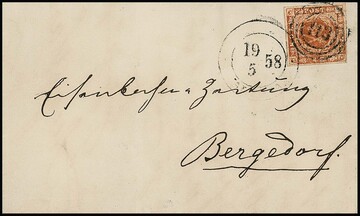 POST
113
19
5 58
Eisenbahn Zeitung
Bergedorf.